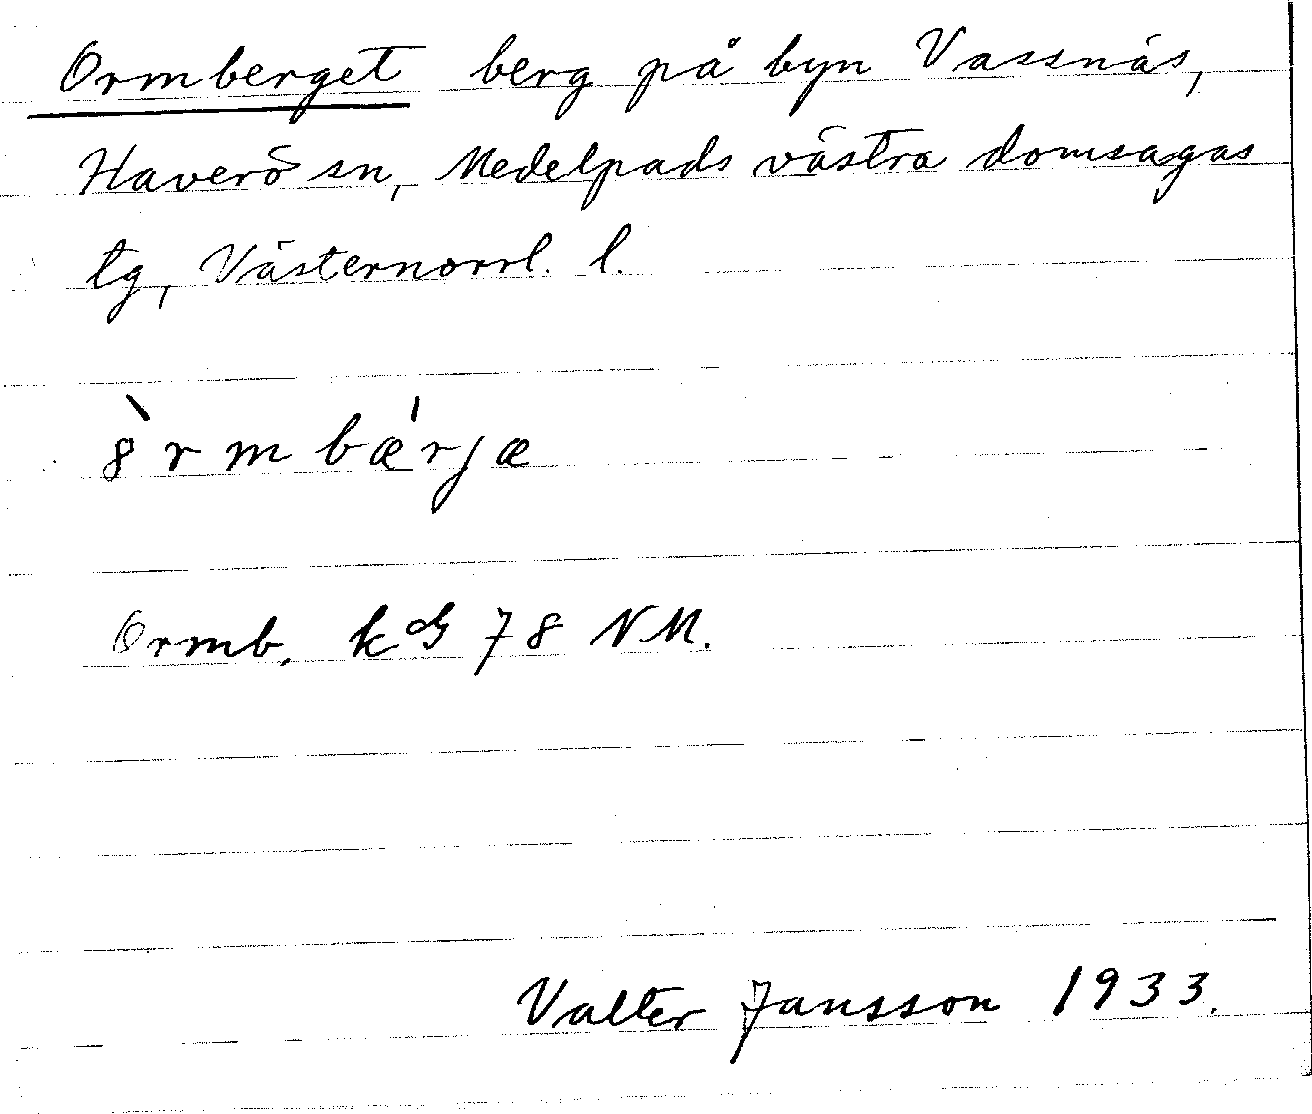 Ormberget berg på byn Vassnäs,
Haverö sn, Medelpads västra domsagas
tg, Västernorrl. l.
8̀rmbǽrjæ
Ormb. 78 NM.
Valter Jansson 1933.